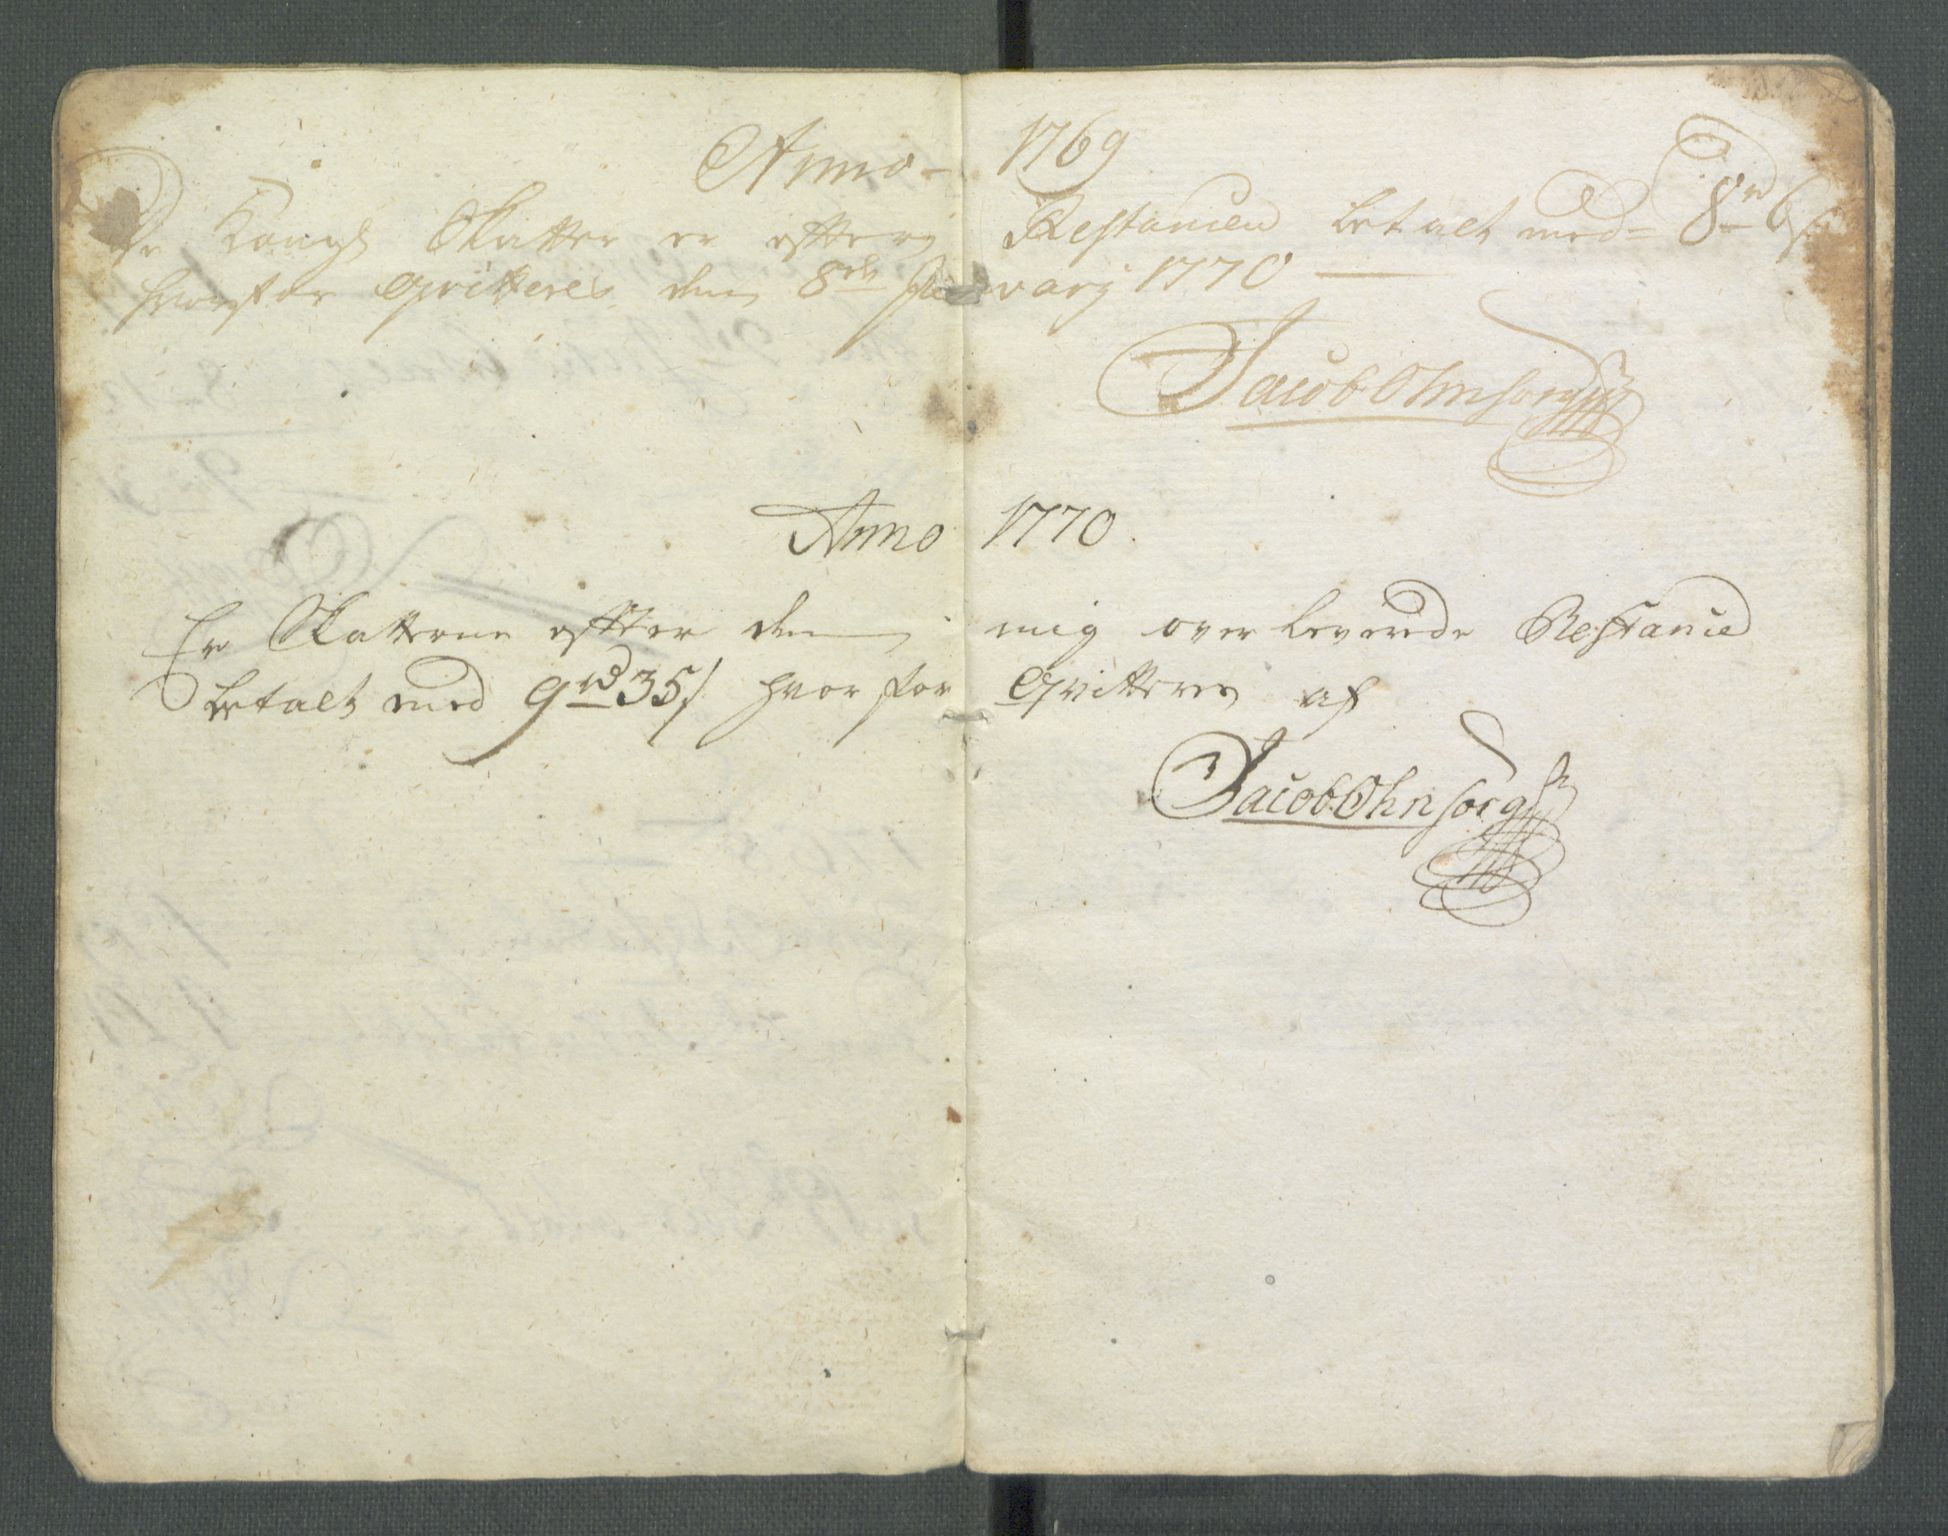 Anno 1769
De Kongl Skatter er efter Restancen betalt med 8 rd 6 s
hvorfor Qvitteres den 8de Januarij 1770
Jacob Ohnsorg
Anno 1770.
Er Skatterne efter den mig over leverede Restance
betalt med 9 rd 35 s hvorfor Qvitteres af
Jacob Ohnsorg